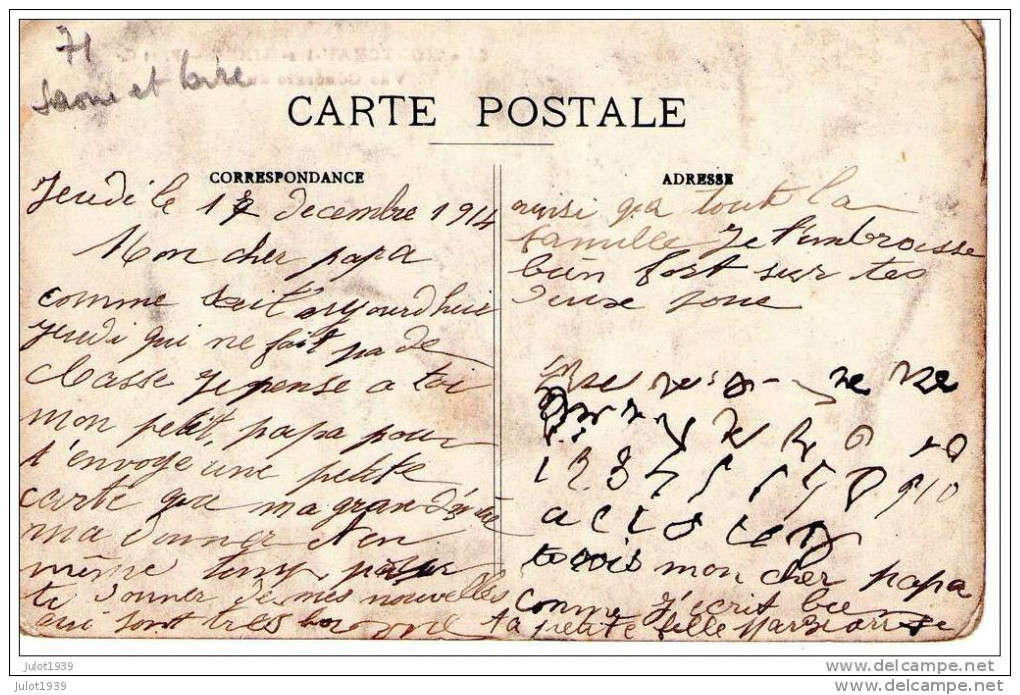 71
Saone et loire
CARTE POSTALE
CORRESPONDANCE
Jeudi le 17 decembre 1914
Mon cher papa
comme sait aujourdhui
jeudi qui ne fait pa de
Classe Je pense a toi
mon petit papa pour
t'envoye une petite
carte qa ma grand
ma donner
même temp pour
te donner de mes nouvelles
qui sont tres bonne
ADRESSE
ainsi qa tout la
famille Je t'embroisse
bien fort sur tes
deux joue
1 2 3
9 10
to vois mon cher papa
comme j'ecrit bien
ta petite fille
julot1939
julot1939
delcampe.net
delcampe.net